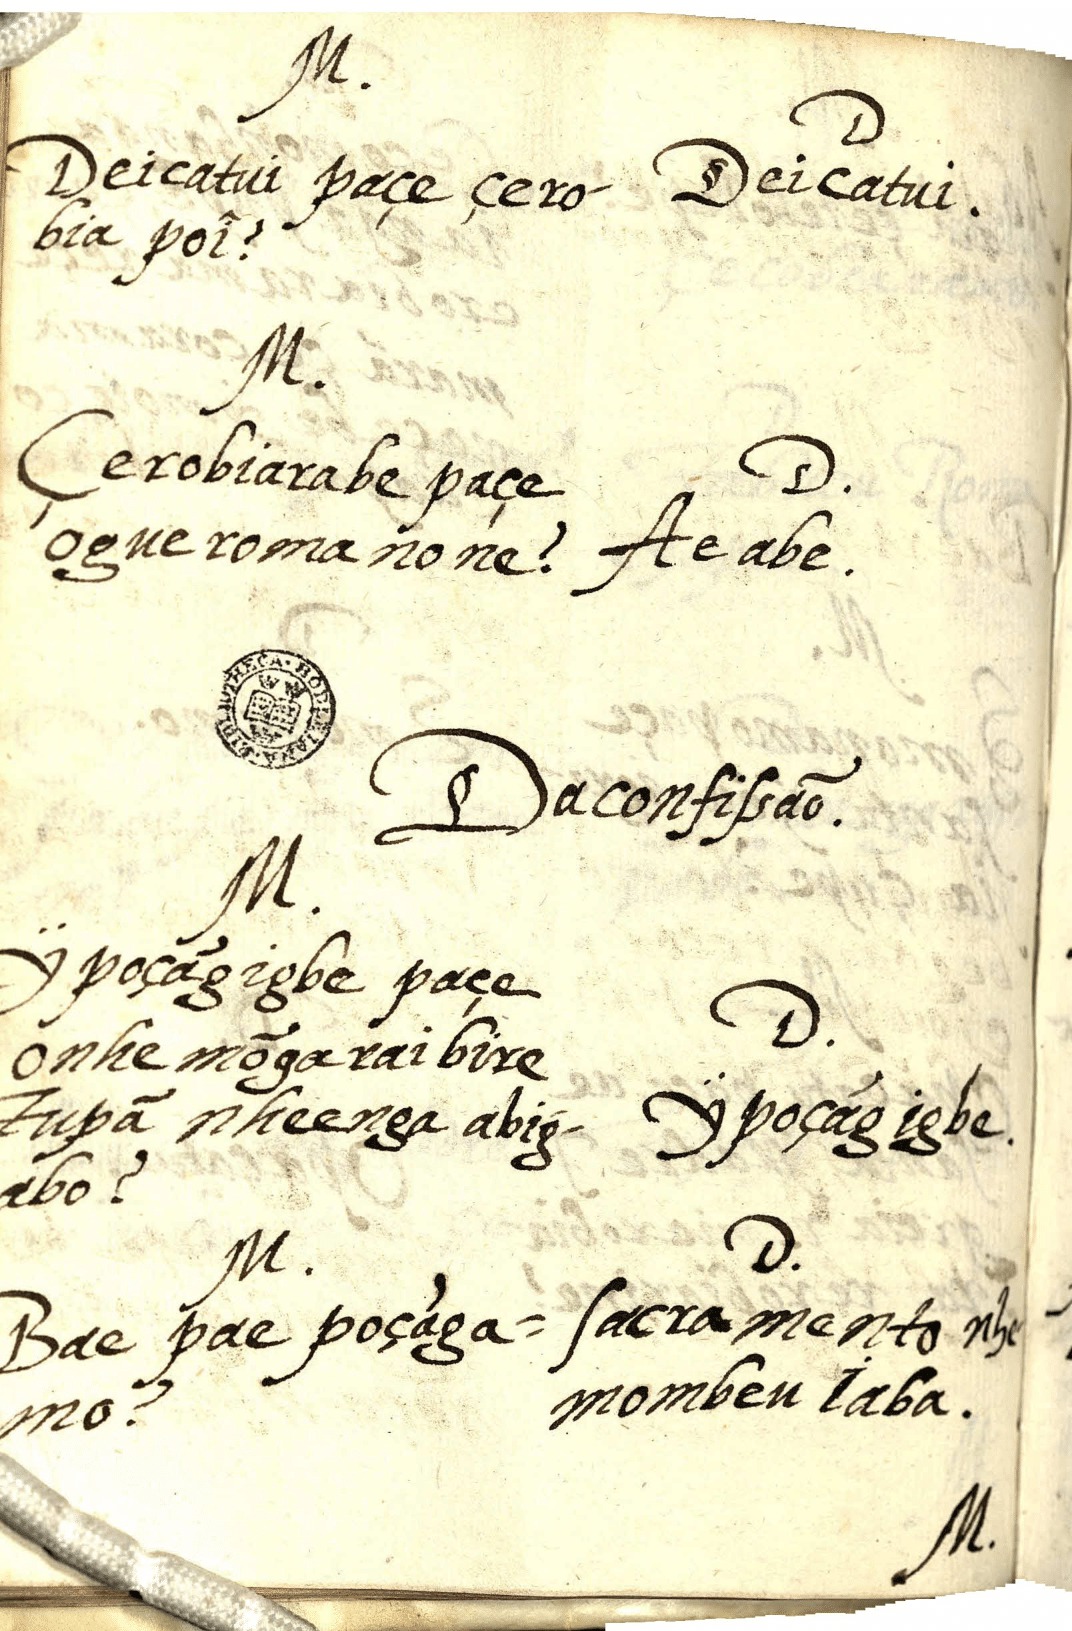 M.
Deicatui paçe çero-
bia poî?
D
Deicatui.
M.
Çerobiarabe paçe
ogueromanone?
D.
Aeabe.
BIBLIOTHECA · BODLEIANA
Da confissaõ.
M.
Ÿpoçãgigbe paçe
onhemõgaraibire
tupã nheenga abig-
abo?
D.
Ÿpoçágigbe.
M.
Bae pae poçága=
mo?
D.
sacramento nhe
mombeu iaba.
M.